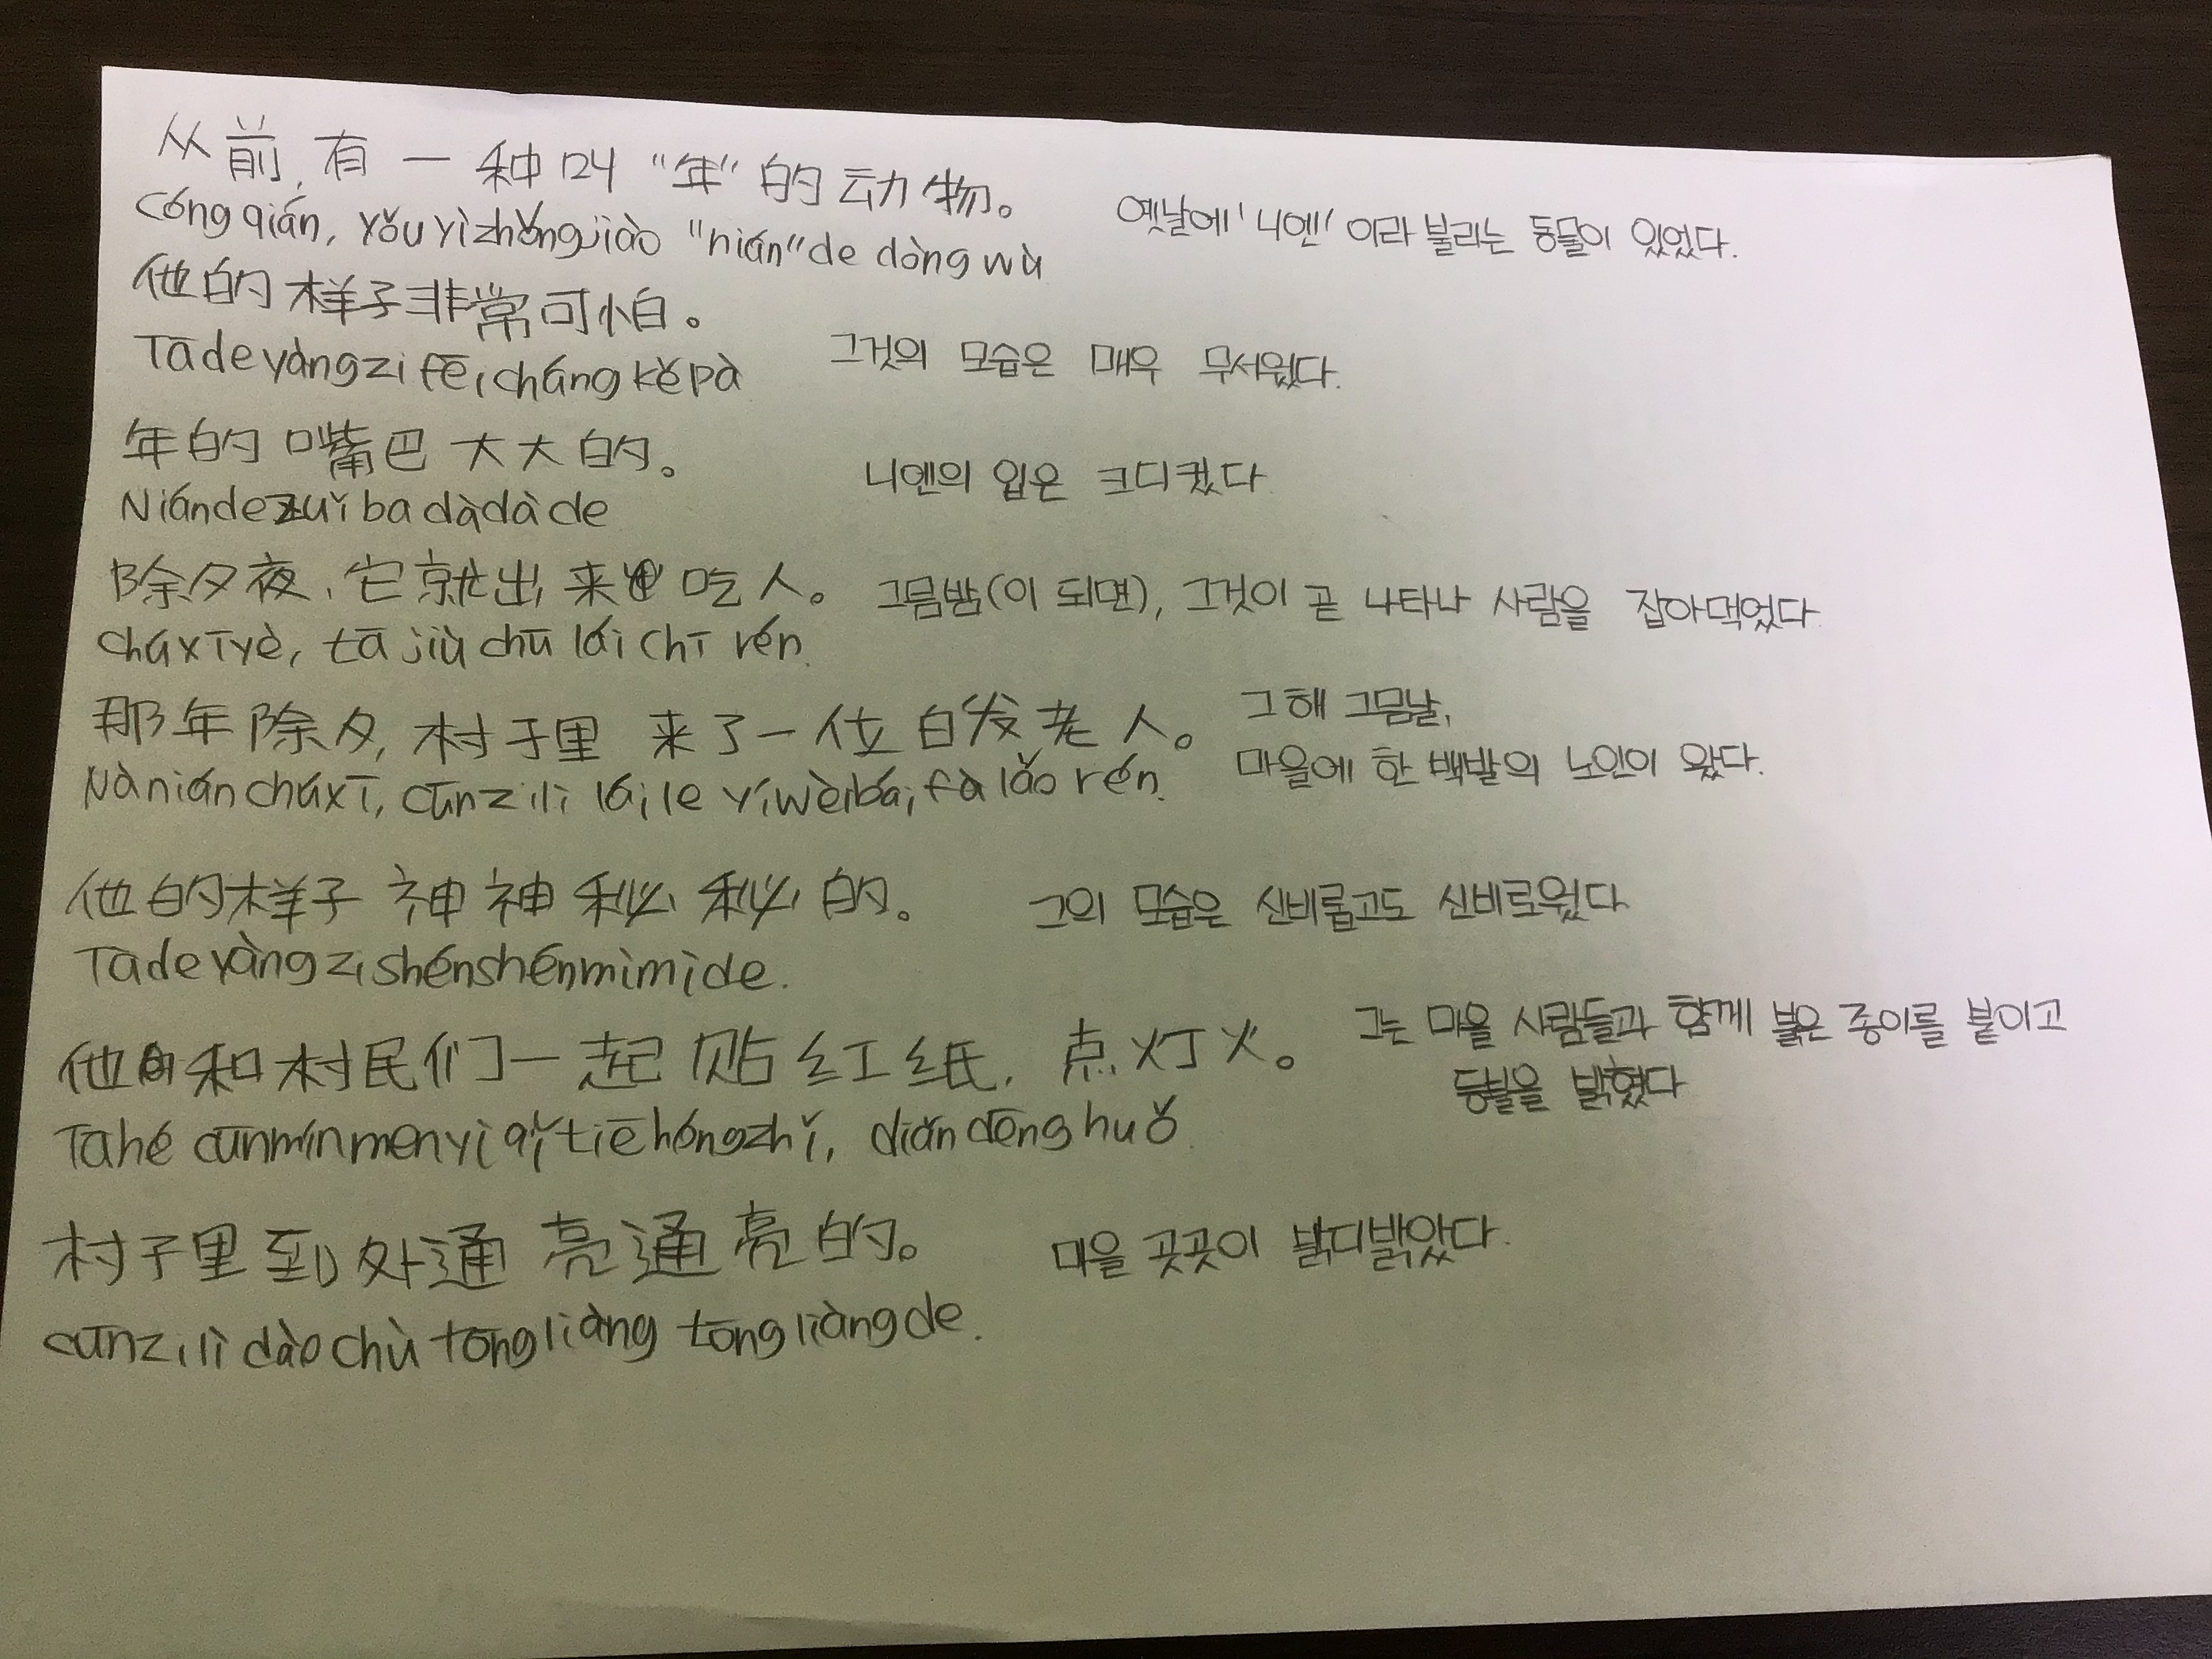 从前, 有一种叫“年”的动物。
cóng qián, yǒu yì zhǒng jiào "nián" de dòng wù 옛날에 '니엔' 이라 불리는 동물이 있었다.
他的样子非常可怕。
Tā de yàng zi fēi cháng kě pà 그것의 모습은 매우 무서웠다.
年的嘴巴大大的。 니엔의 입은 크디컸다
Nián de zuǐ ba dà dà de
除夕夜, 它就出来吃人。 그믐밤(이 되면), 그것이 곧 나타나 사람을 잡아먹었다
chú xī yè, tā jiù chū lái chī rén.
那年除夕, 村子里来了一位白发老人。 그 해 그믐날,
Nà nián chú xī, cūn zi lǐ lái le yí wèi bái fà lǎo rén. 마을에 한 백발의 노인이 왔다.
他的样子神神秘秘的。 그의 모습은 신비롭고도 신비로웠다
Tā de yàng zi shén shén mì mì de.
他和村民们一起贴红纸, 点灯火。 그는 마을 사람들과 함께 붉은 종이를 붙이고
등불을 밝혔다
Tā hé cūn mín men yì qǐ tiē hóng zhǐ, diǎn dēng huǒ
村子里到处通亮通亮的。 마을 곳곳이 밝디밝았다.
cūn zi lǐ dào chù tōng liàng tōng liàng de.